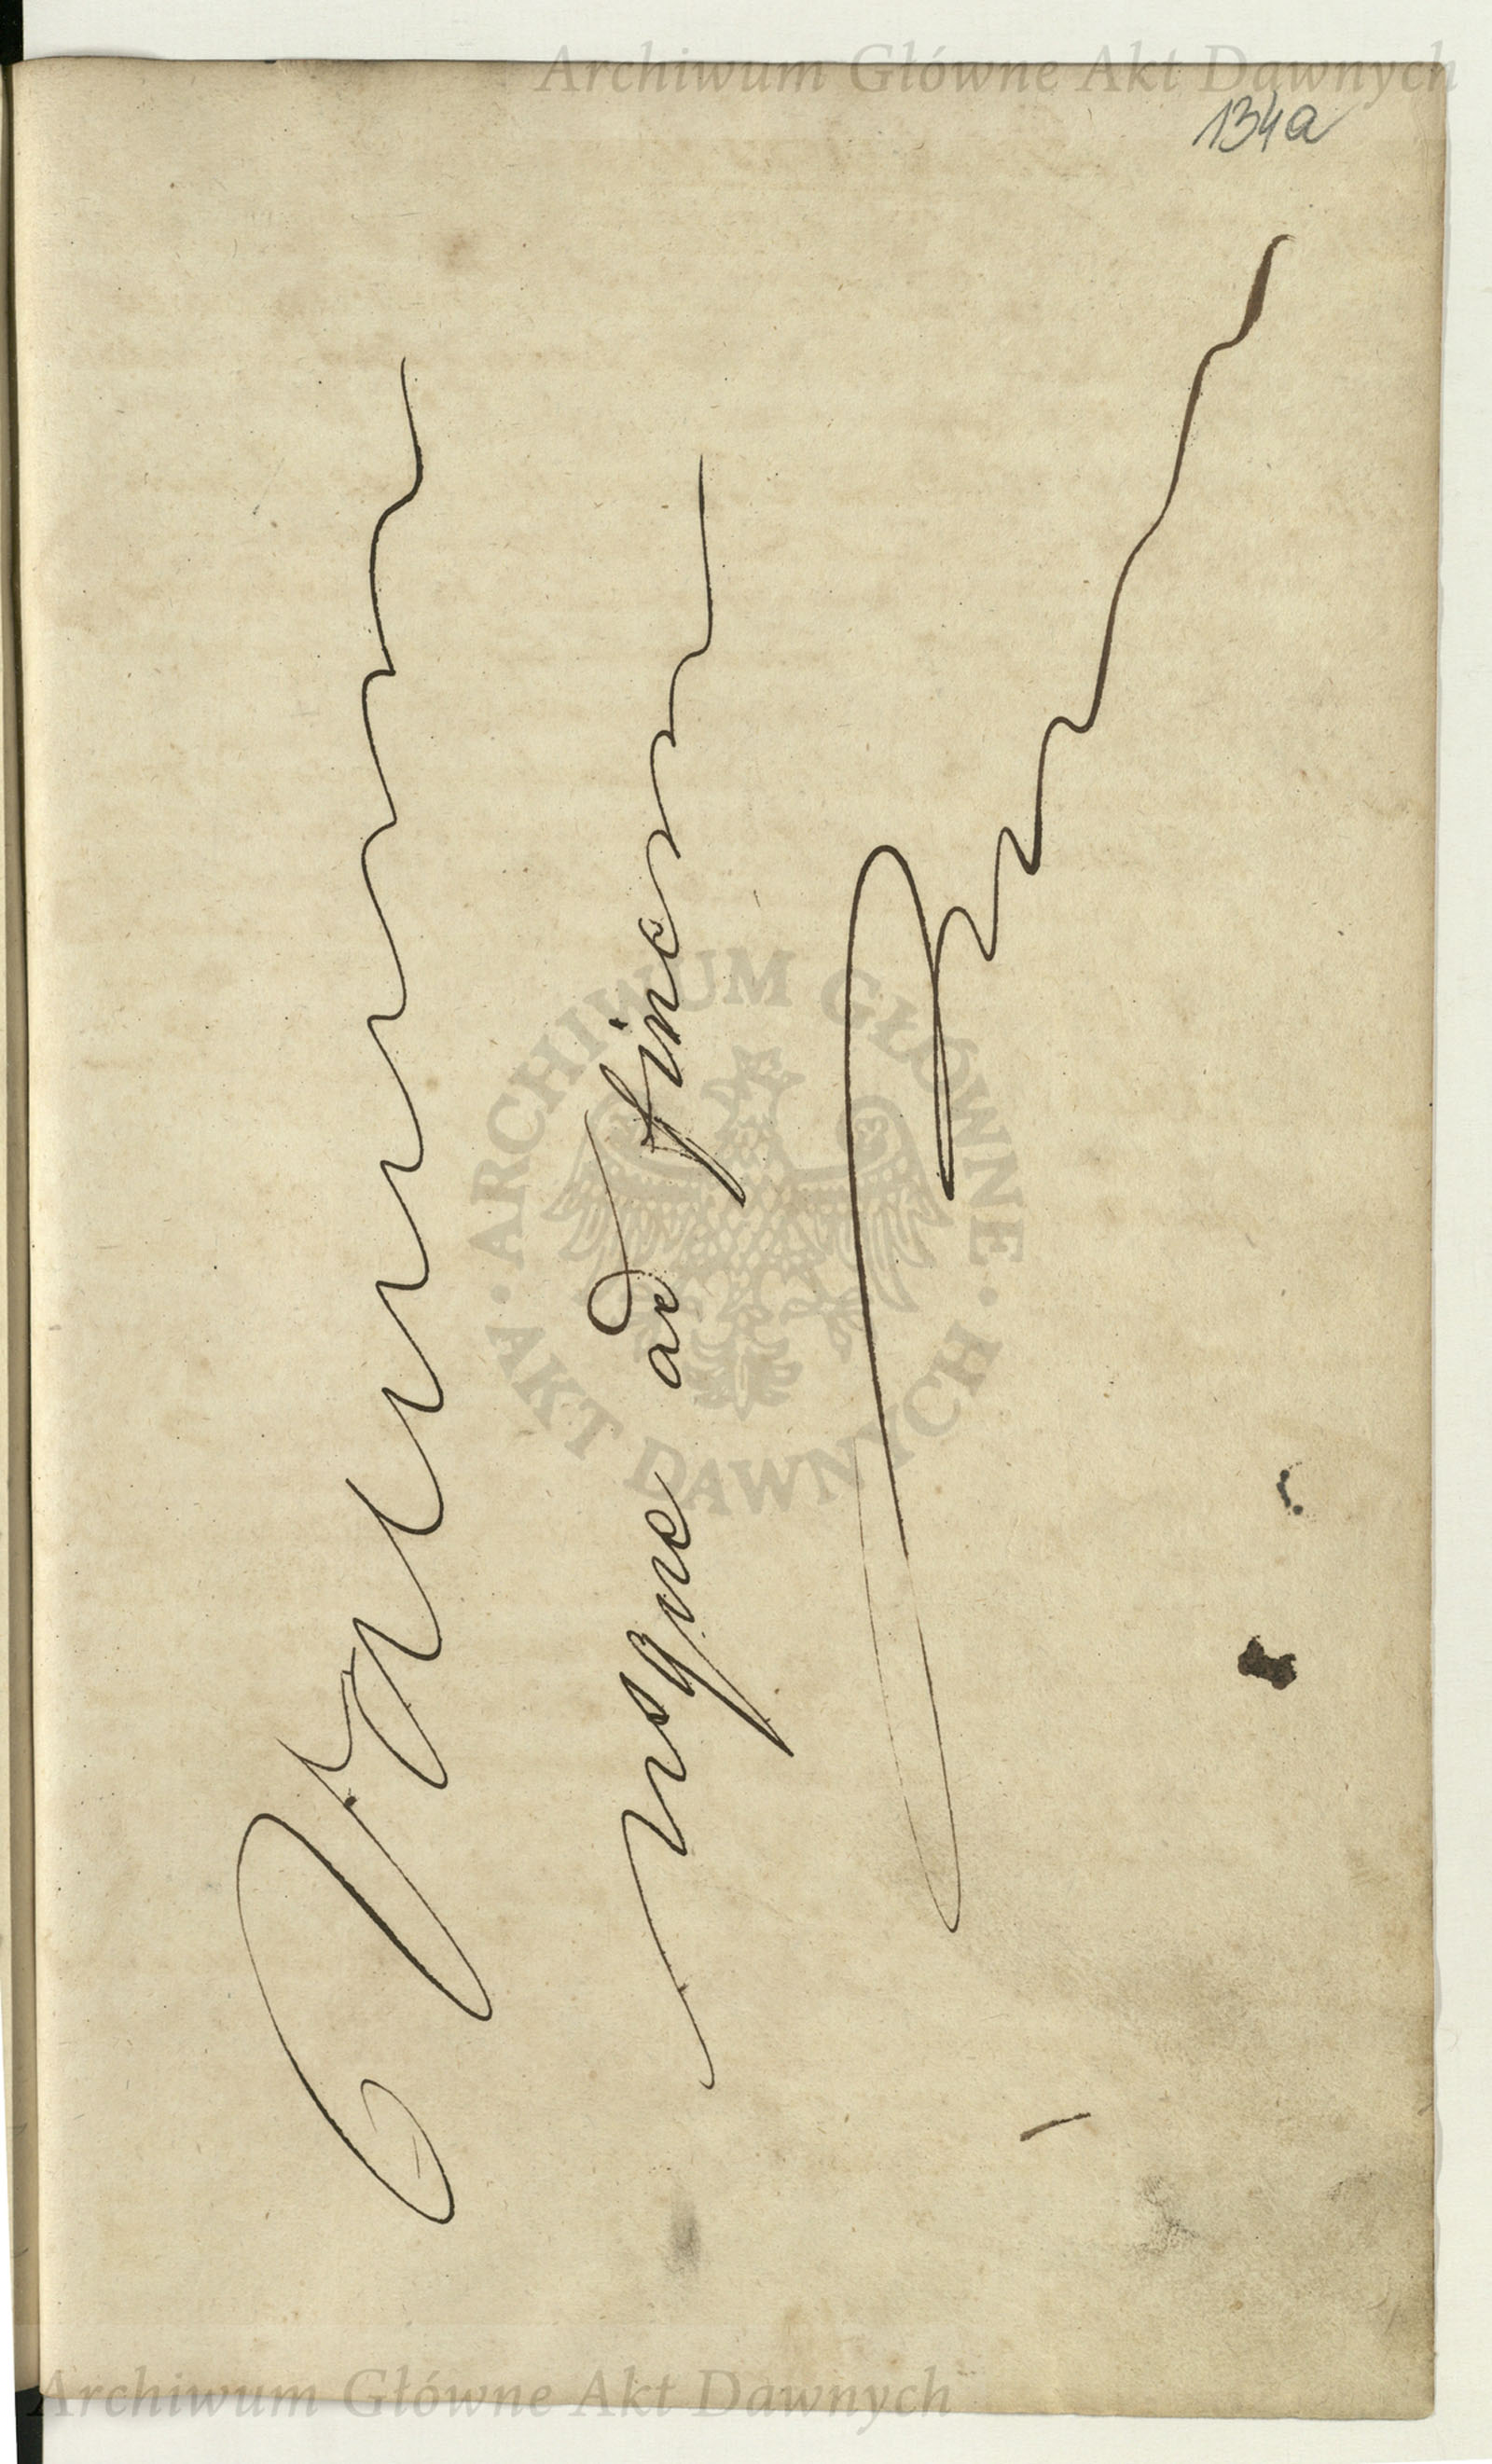 Archiwum Główne Akt Dawnych
134a
Vacuum
usque ad finem
ARCHIWUM GŁÓWNE
AKT DAWNYCH
Archiwum Główne Akt Dawnych